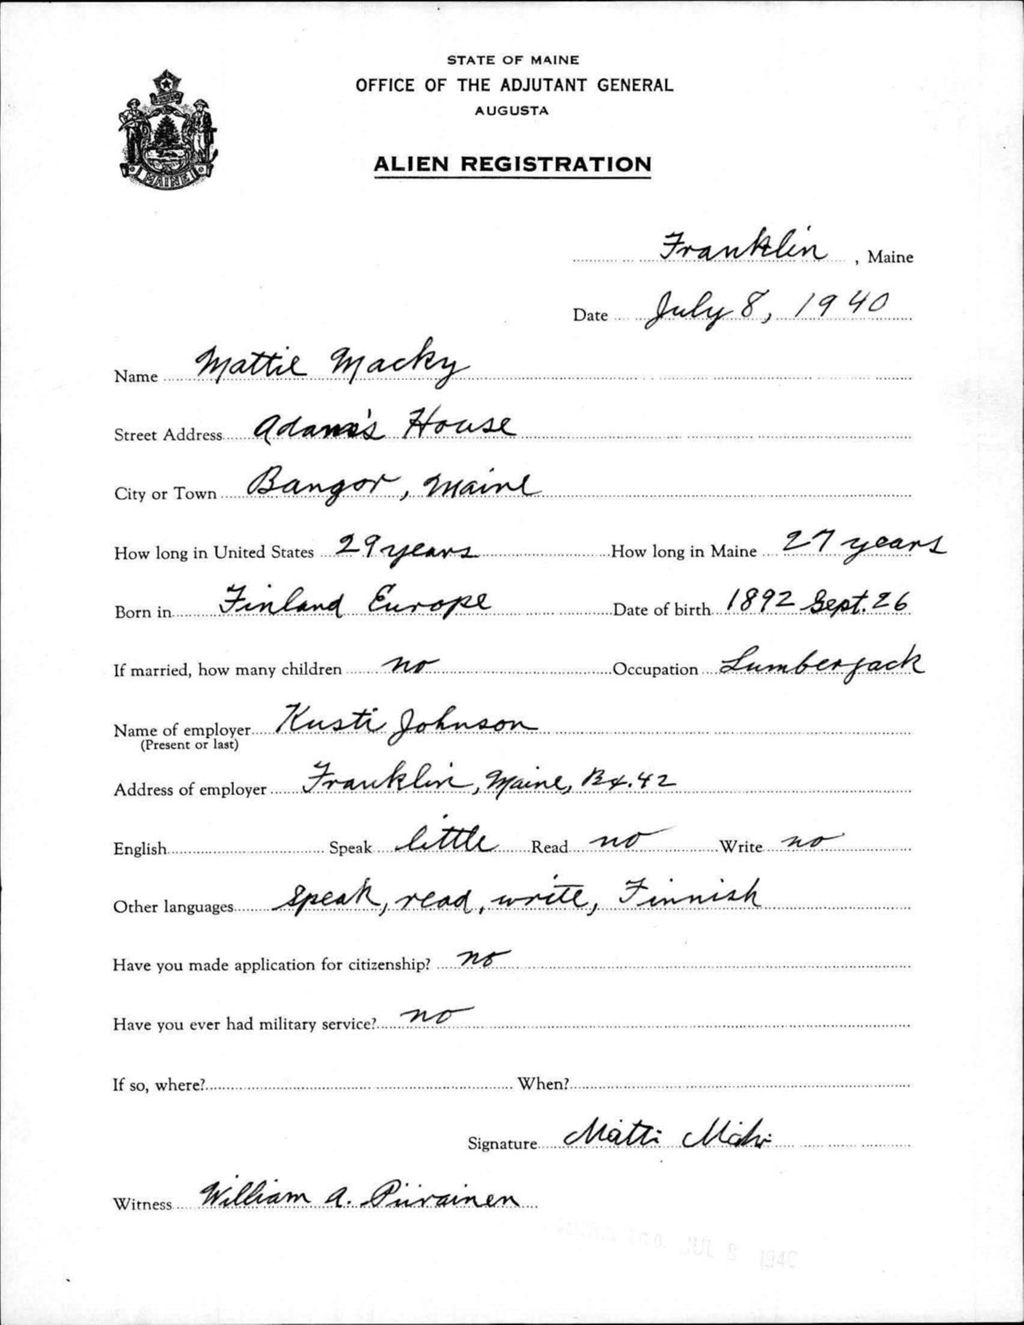 STATE OF MAINE
OFFICE OF THE ADJUTANT GENERAL
AUGUSTA
ALIEN REGISTRATION
MAINE
Franklin, Maine
Date July 8, 1940
Name Mattie Macky
Street Address Adams's House
City or Town Bangor, Maine
How long in United States 29 years How long in Maine 27 years
Born in Finland Europe Date of birth 1892 Sept. 26
If married, how many children no Occupation Lumberjack
Name of employer Kusti Johnson
(Present or last)
Address of employer Franklin, Maine, Bx. 42
English Speak little Read no Write no
Other languages speak, read, write, Finnish
Have you made application for citizenship? no
Have you ever had military service? no
If so, where? When?
Signature Matti
Witness William A. Piirainen
JUL 1940